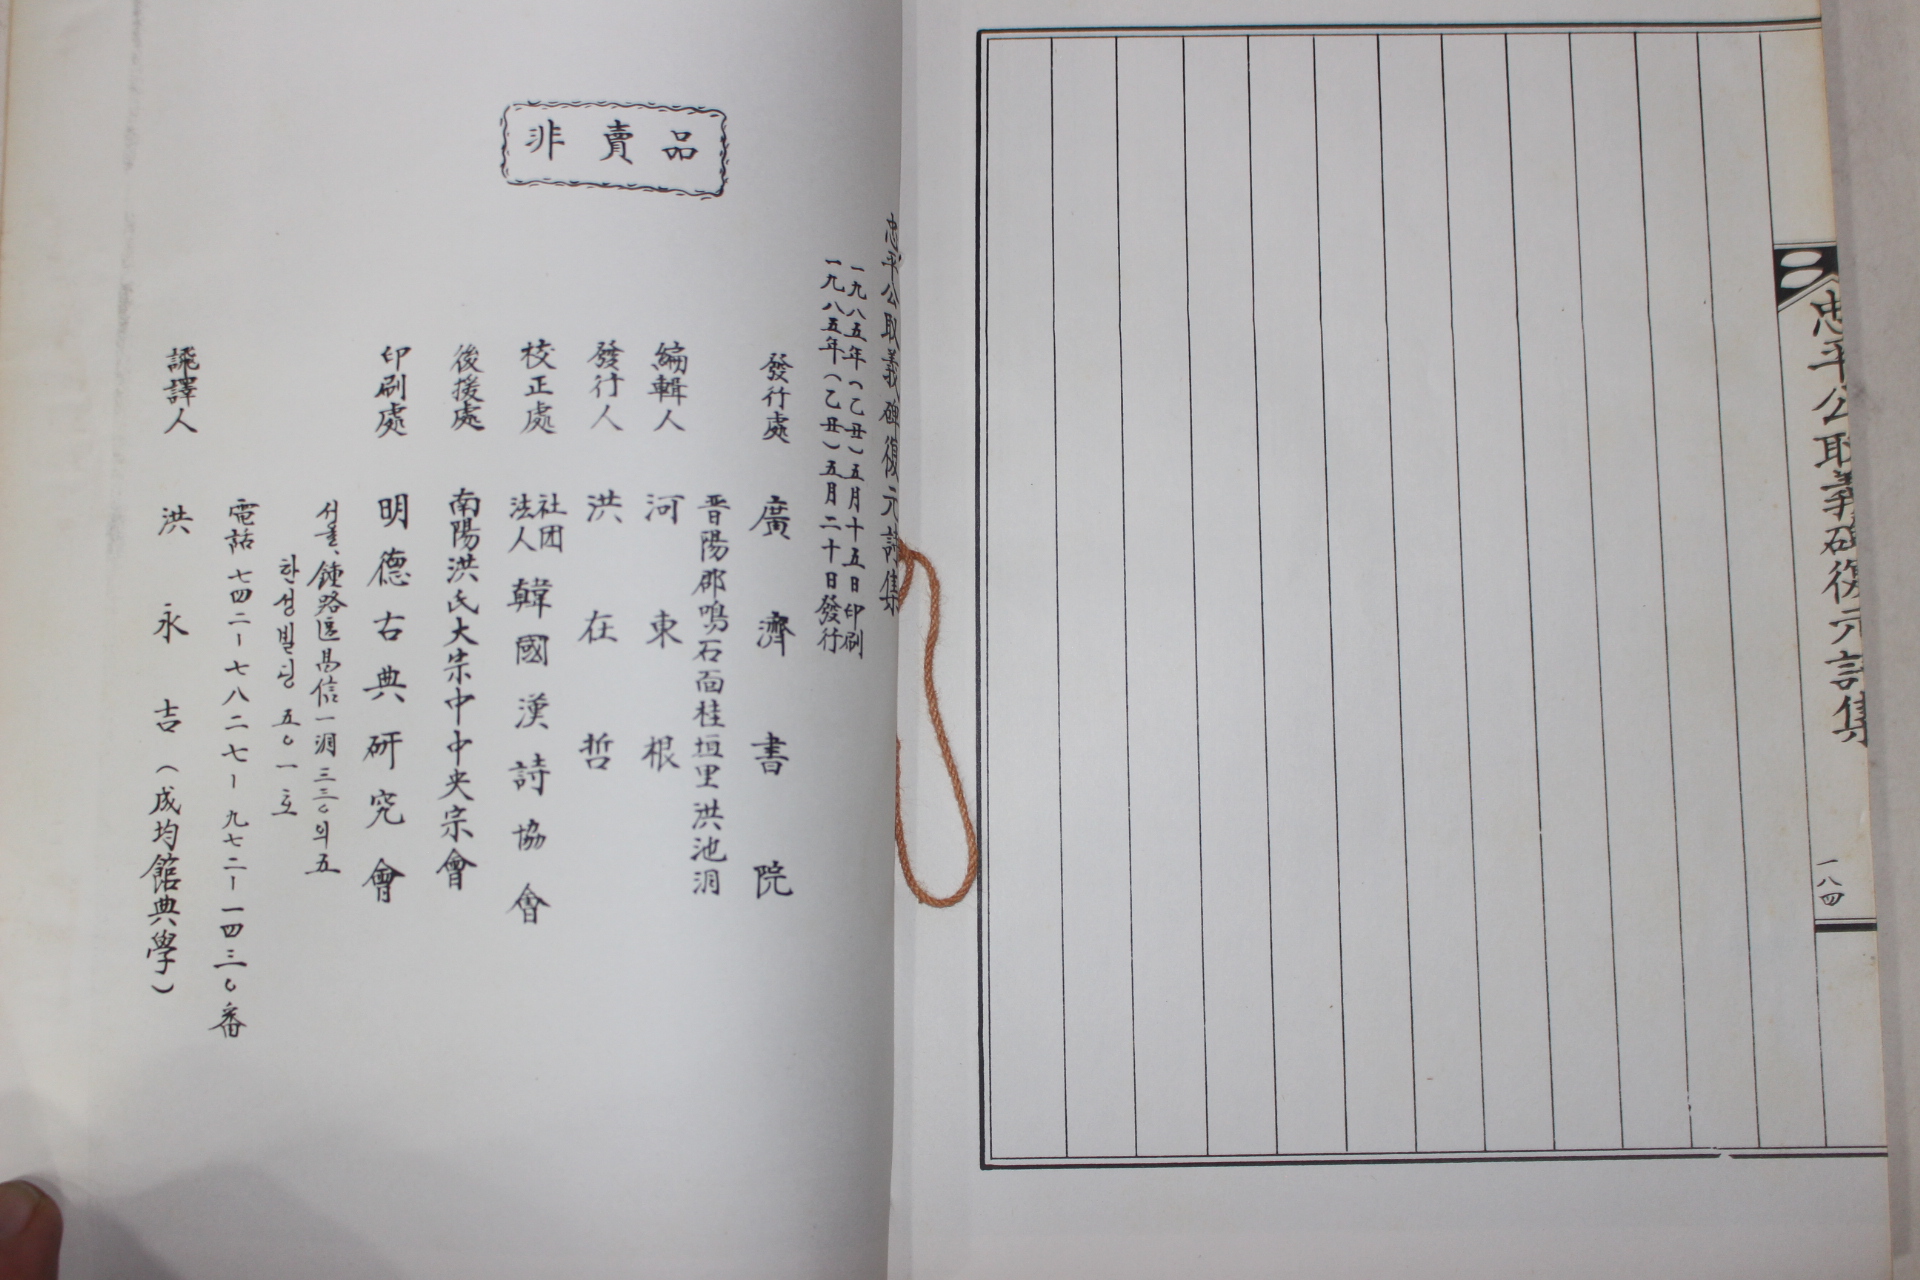 忠平公取義碑復元詩集
一八四
忠平公取義碑復元詩集
一九八五年(乙丑)五月十五日印刷
一九八五年(乙丑)五月二十日發行
發行處 廣濟書院
晋陽郡鳴石面桂垣里洪池洞
編輯人 河東根
發行人 洪在哲
校正處 社団法人 韓國漢詩協會
後援處 南陽洪氏大宗中中央宗會
印刷處 明德古典研究會
서울、鍾路區昌信一洞三三〇의五
한성빌딩 五〇一호
電話 七四二-七八二七-九七二-一四三〇番
譯人 洪永吉(成均館典學)
非賣品